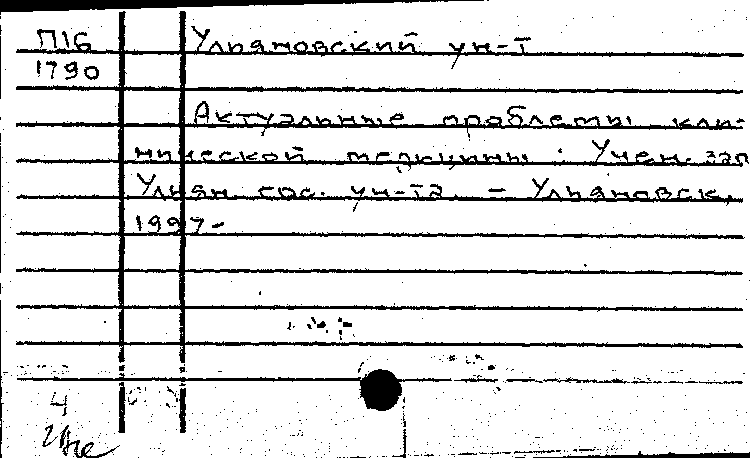 П16 Ульяновский ун-т
1790
Актуальные проблемы кли-
нической медицины : Учен. зап
Ульян. гос. ун-та. - Ульяновск,
1997-
4